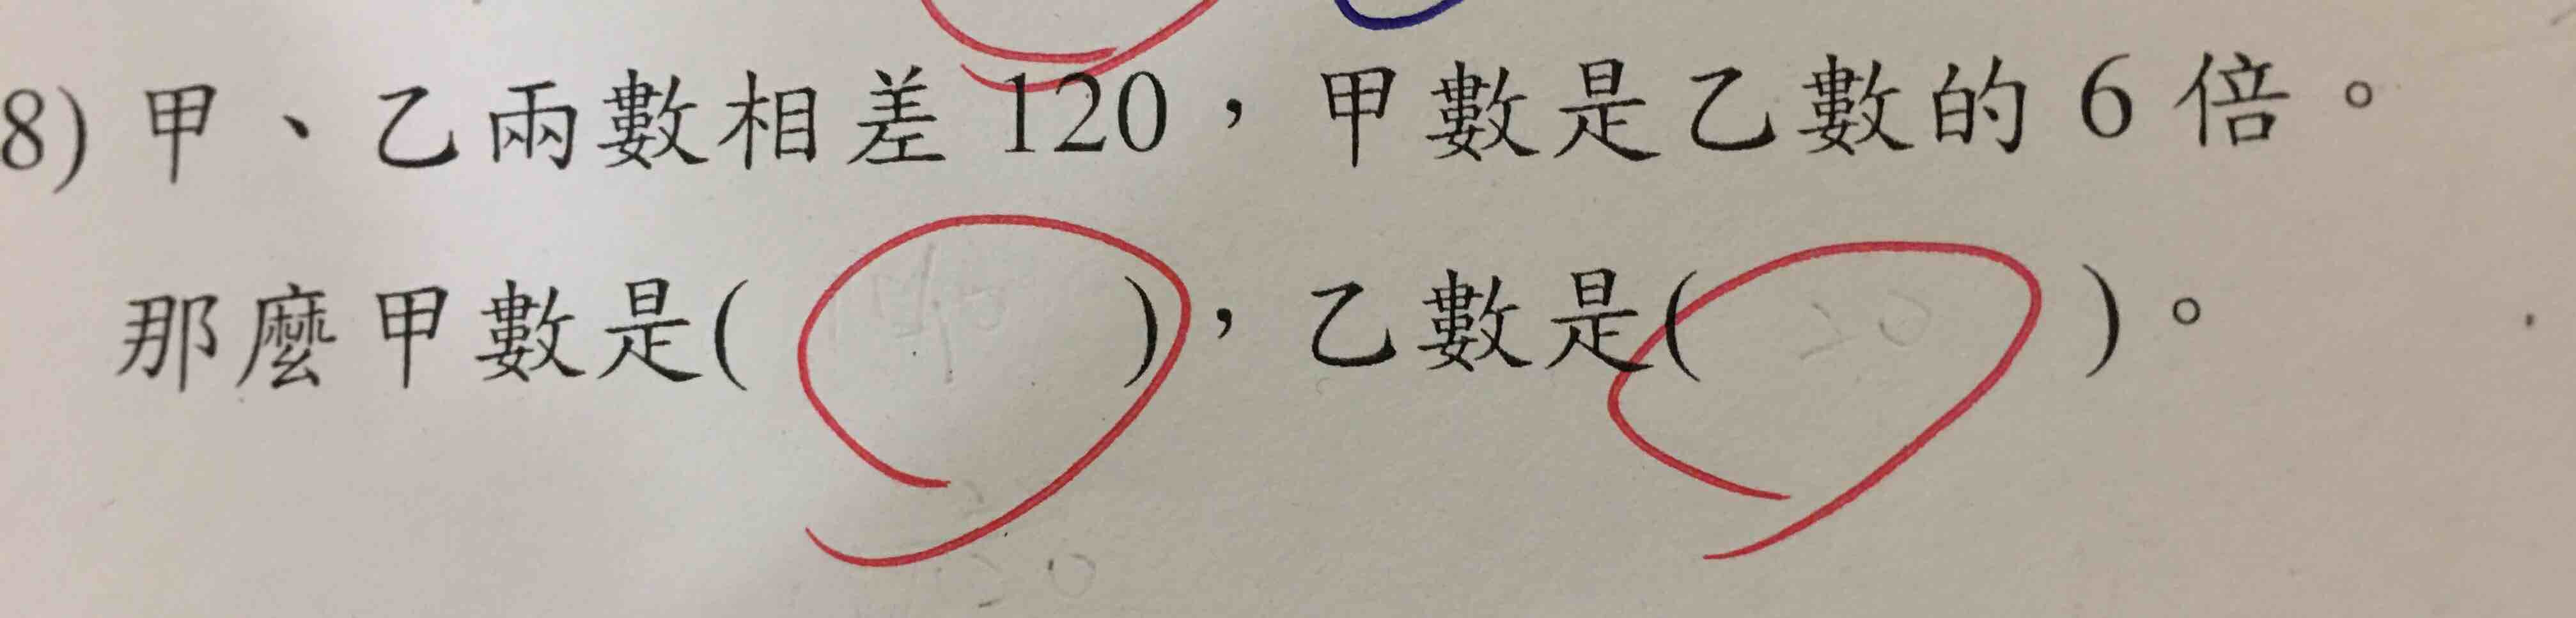 8) 甲、乙兩數相差 120，甲數是乙數的 6 倍。
那麼甲數是(          )，乙數是(          )。